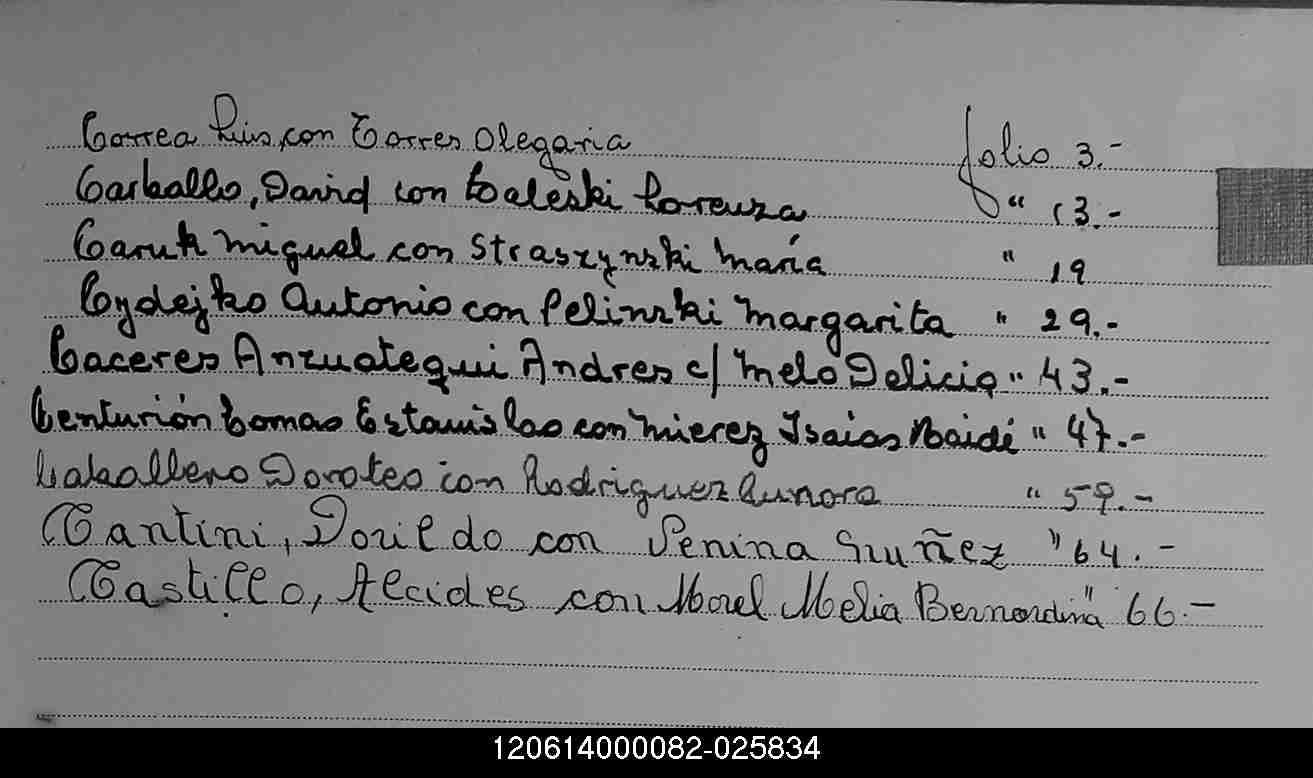 Correa Luis, con Torres Olegaria folio 3.-
Carballo, David con Zaleski Lorenza " 13.-
Caruk Miguel con Straszynski María " 19
Cydejko Antonio con Pelinski Margarita " 29.-
Caceres Anzuategui Andres c/ Melo Delicia " 43.-
Centurión Tomas Estanislao con Mierez Isaias Haidé " 47.-
Caballero Doroteo con Rodriguez Aurora " 59.-
Cantini, Dorildo con Penina Nuñez " 64.-
Castillo, Alcides con Morel Melia Bernardina " 66.-
120614000082-025834